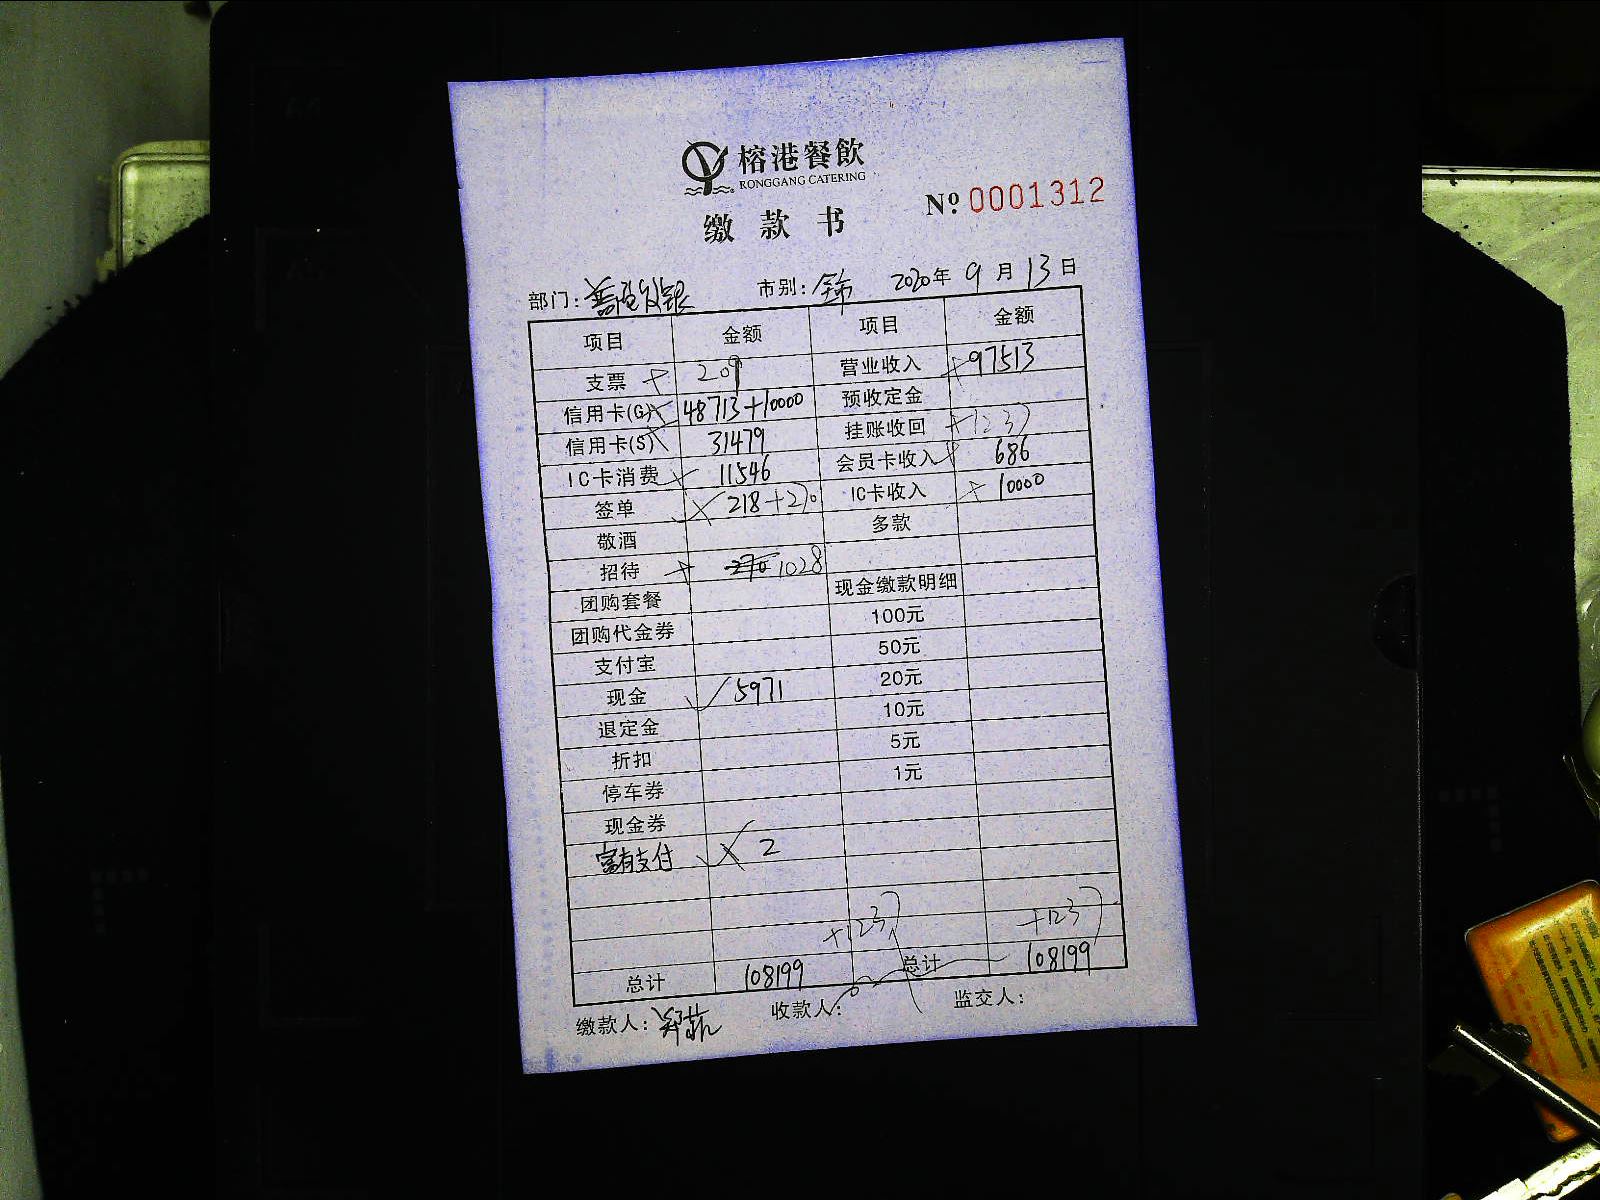 榕港餐飲
RONGGANG CATERING
缴款书
№ 0001312
部门: 市别: 全市 2020年 9月 13日
项目 金额 项目 金额
支票 209 营业收入 97513
信用卡(G) 48713+10000 预收定金
信用卡(S) 31479 挂账收回 +1237
IC卡消费 11546 会员卡收入 686
签单 218+270 IC卡收入 10000
敬酒 多款
招待 270 1028
团购套餐 现金缴款明细
团购代金券 100元
支付宝 50元
现金 5971 20元
退定金 10元
折扣 5元
停车券 1元
现金券
富有支付 2
+1237 +1237
总计 108199 总计 108199
缴款人: 收款人: 监交人: